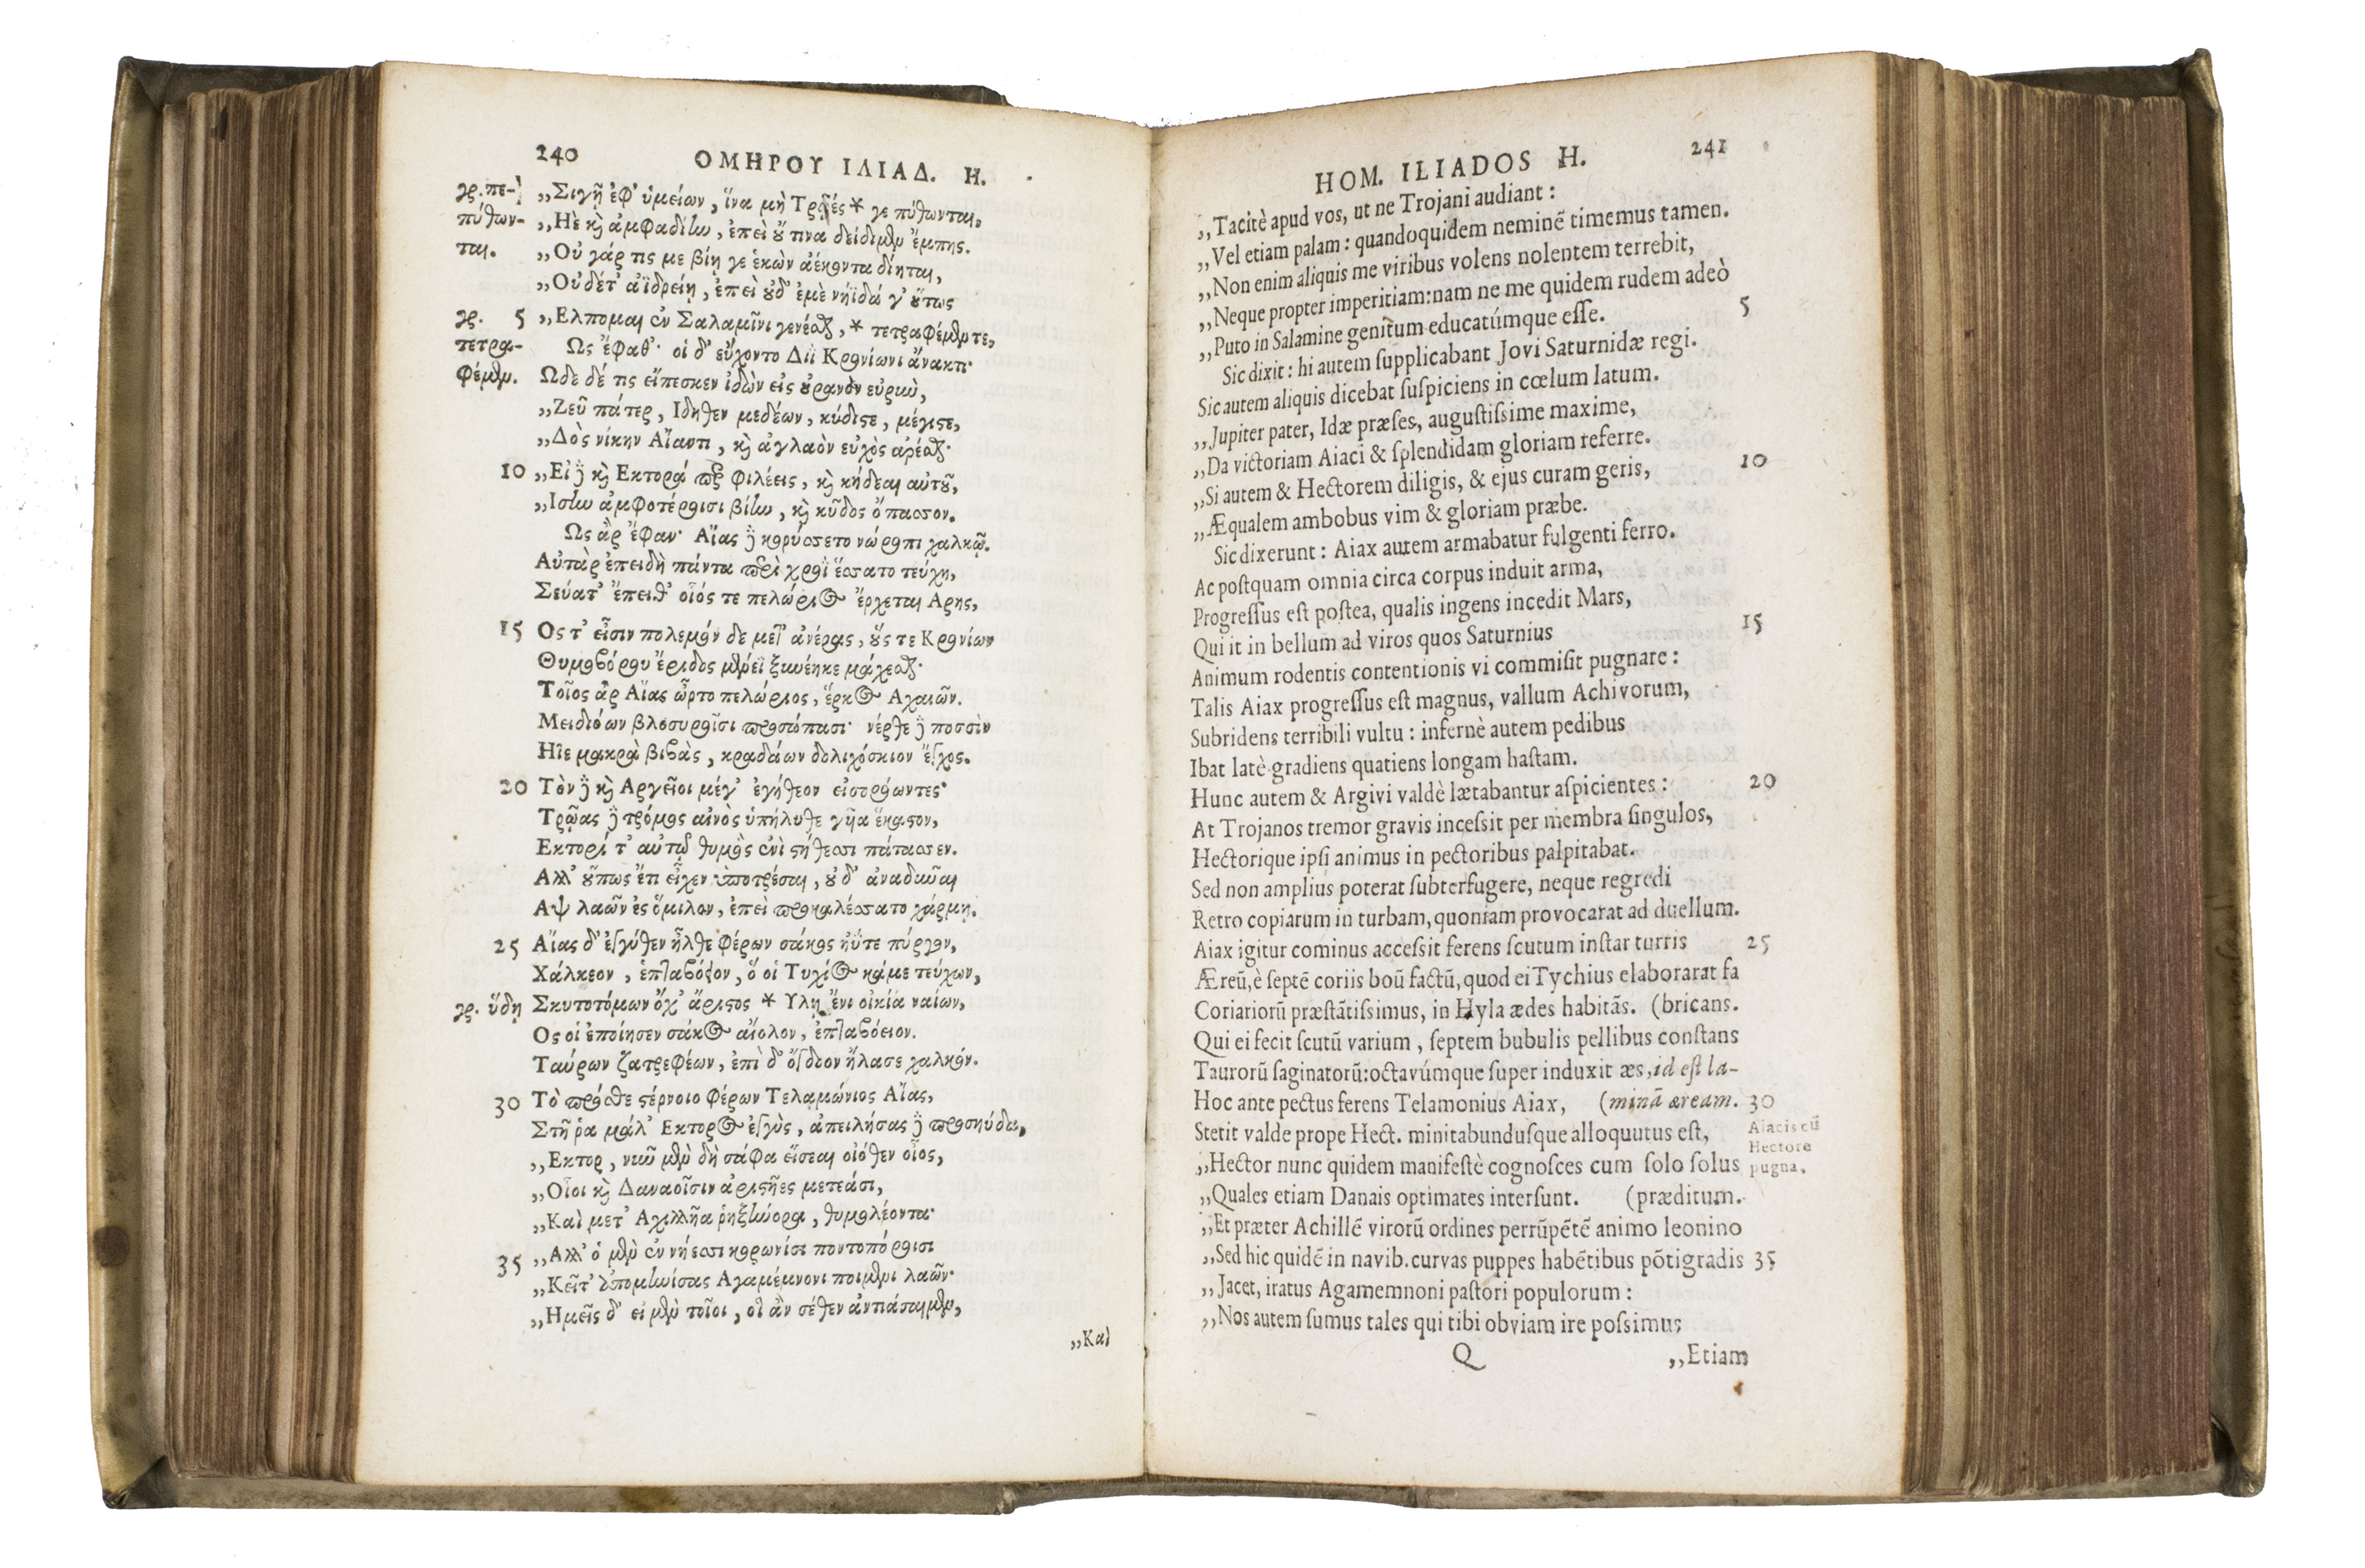 240
ΟΜΗΡΟΥ ΙΛΙΑΔ. Η.
γρ. πε-
πύθων-
ται.
„Σιγῇ ἐφ' ὑμείων, ἵνα μὴ Τρῶές * γε πύθωνται,
„Ηὲ καὶ ἀμφαδίην, ἐπεὶ οὔ τινα δείδιμεν ἔμπης.
„Οὐ γάρ τις με βίῃ γε ἑκὼν ἀέκοντα δίηται,
„Οὐδέτ' ἀϊδρείῃ, ἐπεὶ οὐδ' ἐμὲ νήϊδά γ' οὕτως
γρ.
τετρα-
φέμεν.
5 „Ελπομαι ἐν Σαλαμῖνι γενέσθαι, * τετραφέμεν τε,
Ως ἔφαθ'· οἱ δ' εὔχοντο Διῒ Κρονίωνι ἄνακτι·
Ωδε δέ τις εἴπεσκεν ἰδὼν εἰς οὐρανὸν εὐρὺν,
„Ζεῦ πάτερ, Ιδηθεν μεδέων, κύδιστε, μέγιστε,
„Δὸς νίκην Αἴαντι, καὶ ἀγλαὸν εὐχὸς ἀρέσθαι·
10 „Εἰ δὲ καὶ Εκτορά περ φιλέεις, καὶ κήδεαι αὐτοῦ,
„Ισίω ἀμφοτέροισι βίην, καὶ κῦδος ὄπασσον.
Ως ἂρ ἔφαν· Αἴας δὲ κορύσσετο νώροπι χαλκῷ.
Αὐτὰρ ἐπειδὴ πάντα περὶ χροῒ ἕσσατο τεύχη,
Σεύατ' ἔπειθ' οἷός τε πελώριος ἔρχεται Αρης,
15 Ος τ' εἶσιν πολεμόν δε μετ' ἀνέρας, οὕς τε Κρονίων
Θυμοβόρου ἔριδος μένεϊ ξυνέηκε μάχεσθαι·
Τοῖος ἂρ Αἴας ὦρτο πελώριος, ἕρκος Αχαιῶν.
Μειδιόων βλοσυροῖσι προσώπασι· νέρθε δὲ ποσσὶν
Ηϊε μακρὰ βιβὰς, κραδάων δολιχόσκιον ἔγχος.
20 Τὸν δὲ καὶ Αργεῖοι μέγ' ἐγήθεον εἰσορόωντες·
Τρῶας δὲ τρόμος αἰνὸς ὑπήλυθε γυῖα ἕκαστον,
Εκτορί τ' αὐτῷ θυμὸς ἐνὶ στήθεσσι πάτασσεν.
Αλλ' οὔπως ἔτι εἶχεν ὑποτρέσαι, οὐδ' ἀναδῦναι
Αψ λαῶν ἐς ὅμιλον, ἐπεὶ προκαλέσσατο χάρμῃ.
25 Αἴας δ' ἐγγύθεν ἦλθε φέρων σάκος ἠΰτε πύργον,
Χάλκεον, ἑπταβόειον, ὅ οἱ Τυχίος κάμε τεύχων,
γρ. ὕδῃ Σκυτοτόμων ὄχ' ἄριστος * Υλῃ ἔνι οἰκία ναίων,
Ος οἱ ἐποίησεν σάκος αἰόλον, ἑπταβόειον.
Ταύρων ζατρεφέων, ἐπὶ δ' ὄγδοον ἤλασε χαλκόν.
30 Τὸ πρόσθε στέρνοιο φέρων Τελαμώνιος Αἴας,
Στῆ ῥα μάλ' Εκτορος ἐγγὺς, ἀπειλήσας δὲ προσηύδα,
„Εκτορ, νῦν μὲν δὴ σάφα εἴσεαι οἰόθεν οἶος,
„Οἷοι καὶ Δαναοῖσιν ἀριστῆες μετεάσι,
„Καὶ μετ' Αχιλλῆα ῥηξήνορα, θυμολέοντα·
35 „Αλλ' ὁ μὲν ἐν νήεσσι κορωνίσι ποντοπόροισι
„Κεῖτ' ἀπομηνίσας Αγαμέμνονι ποιμένι λαῶν·
„Ημεῖς δ' εἰ μὲν τοῖοι, οἳ ἂν σέθεν ἀντιάσαιμεν,
„Καὶ
HOM. ILIADOS H.
241
„Tacitè apud vos, ut ne Trojani audiant :
„Vel etiam palam : quandoquidem neminē timemus tamen.
„Non enim aliquis me viribus volens nolentem terrebit,
„Neque propter imperitiam: nam ne me quidem rudem adeò
„Puto in Salamine genitum educatúmque eſſe. 5
Sic dixit : hi autem ſupplicabant Jovi Saturnidæ regi.
Sic autem aliquis dicebat ſuſpiciens in cœlum latum.
„Jupiter pater, Idæ præſes, auguſtiſsime maxime,
„Da victoriam Aiaci & ſplendidam gloriam referre.
„Si autem & Hectorem diligis, & ejus curam geris, 10
„Æqualem ambobus vim & gloriam præbe.
Sic dixerunt : Aiax autem armabatur fulgenti ferro.
Ac poſtquam omnia circa corpus induit arma,
Progreſſus eſt poſtea, qualis ingens incedit Mars,
Qui it in bellum ad viros quos Saturnius 15
Animum rodentis contentionis vi commiſit pugnare :
Talis Aiax progreſſus eſt magnus, vallum Achivorum,
Subridens terribili vultu : infernè autem pedibus
Ibat latè gradiens quatiens longam haſtam.
Hunc autem & Argivi valdè lætabantur aſpicientes : 20
At Trojanos tremor gravis inceſsit per membra ſingulos,
Hectorique ipſi animus in pectoribus palpitabat.
Sed non amplius poterat ſubterfugere, neque regredi
Retro copiarum in turbam, quoniam provocarat ad duellum.
Aiax igitur cominus acceſsit ferens ſcutum inſtar turris 25
Æreū, è ſeptē coriis boū factū, quod ei Tychius elaborarat fa
Coriariorū præſtātiſsimus, in Hyla ædes habitās. (bricans.
Qui ei fecit ſcutū varium, ſeptem bubulis pellibus conſtans
Taurorū ſaginatorū: octavúmque ſuper induxit æs, id eſt la-
Hoc ante pectus ferens Telamonius Aiax, (minā æream. 30
Stetit valde prope Hect. minitabunduſque alloquutus eſt,
Aiacis cū
Hectore
pugna.
„Hector nunc quidem manifeſtè cognoſces cum ſolo ſolus
„Quales etiam Danais optimates interſunt. (præditum.
„Et præter Achillē virorū ordines perrūpētē animo leonino
„Sed hic quidē in navib. curvas puppes habētibus pōtigradis 35
„Jacet, iratus Agamemnoni paſtori populorum :
„Nos autem ſumus tales qui tibi obviam ire poſsimus
Q
„Etiam